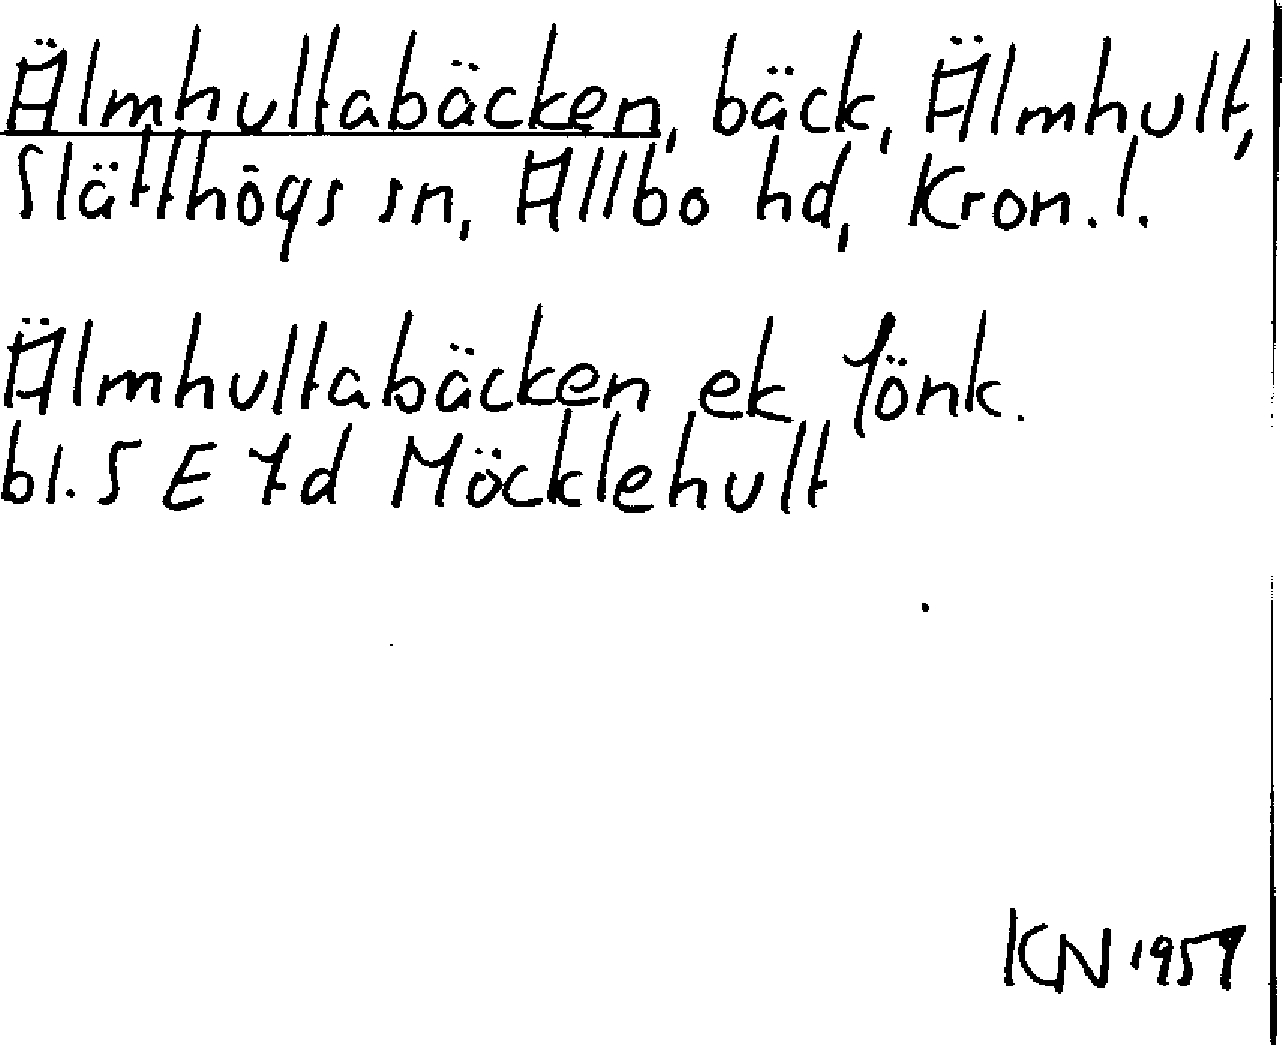 Älmhultabäcken, bäck, Älmhult,
Slätthögs sn, Allbo hd, Kron.l.
Älmhultabäcken ek Jönk.
bl. 5 E 7d Möcklehult
KN 1957